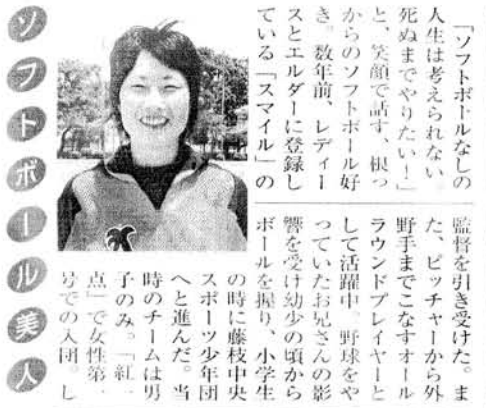 ソフトボール美人
「ソフトボールなしの
人生は考えられない。
死ぬまでやりたい！」
と、笑顔で話す、根っ
からのソフトボール好
き。数年前、レディー
スとエルダーに登録し
ている「スマイル」の
監督を引き受けた。ま
た、ピッチャーから外
野手までこなすオール
ラウンドプレイヤーと
して活躍中。野球をや
っていたお兄さんの影
響を受け幼少の頃から
ボールを握り、小学生
の時に藤枝中央
スポーツ少年団
へと進んだ。当
時のチームは男
子のみ。「紅一
点」で女性第一
号での入団。し